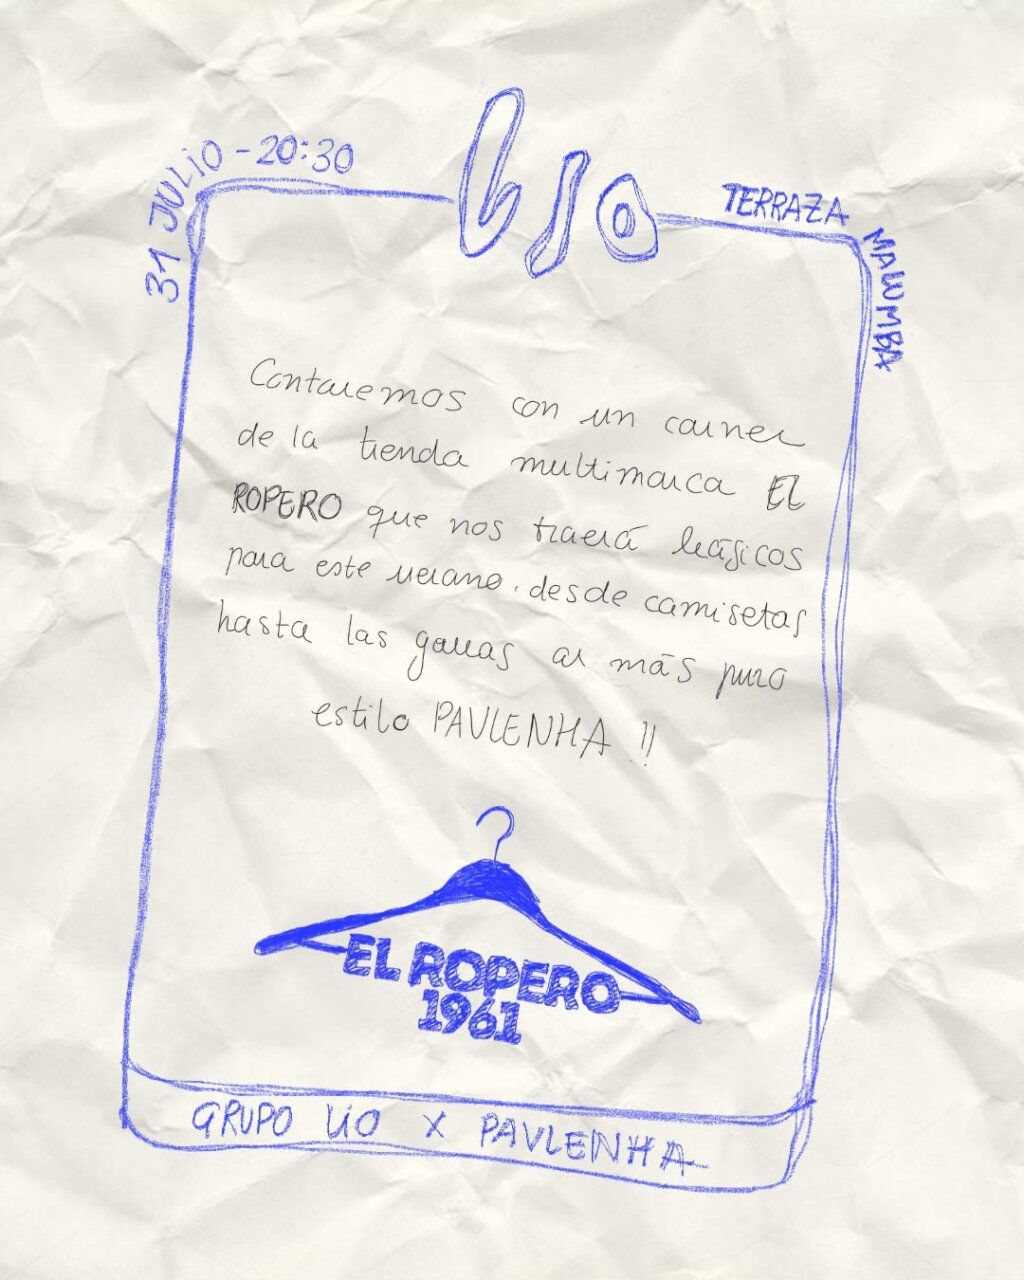 31 JULIO - 20:30
LIO
TERRAZA
MALUMBA
Contaremos con un corner
de la tienda multimarca EL
ROPERO que nos traerá básicos
para este verano, desde camisetas
hasta las gorras al más puro
estilo PAVLENHA !!
EL ROPERO
1961
GRUPO LIO X PAVLENHA